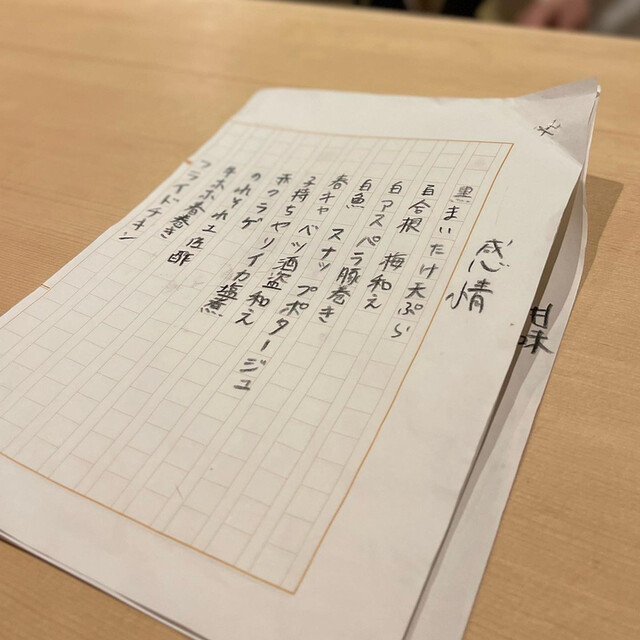 感情
黒まいたけ天ぷら
百合根 梅和え
白アスパラ豚巻き
白魚 スナップポタージュ
春キャベツ酒盗和え
子持ちヤリイカ塩煮
のれそれ土佐酢
牛ホホ春巻き
フライドチキン
甘味